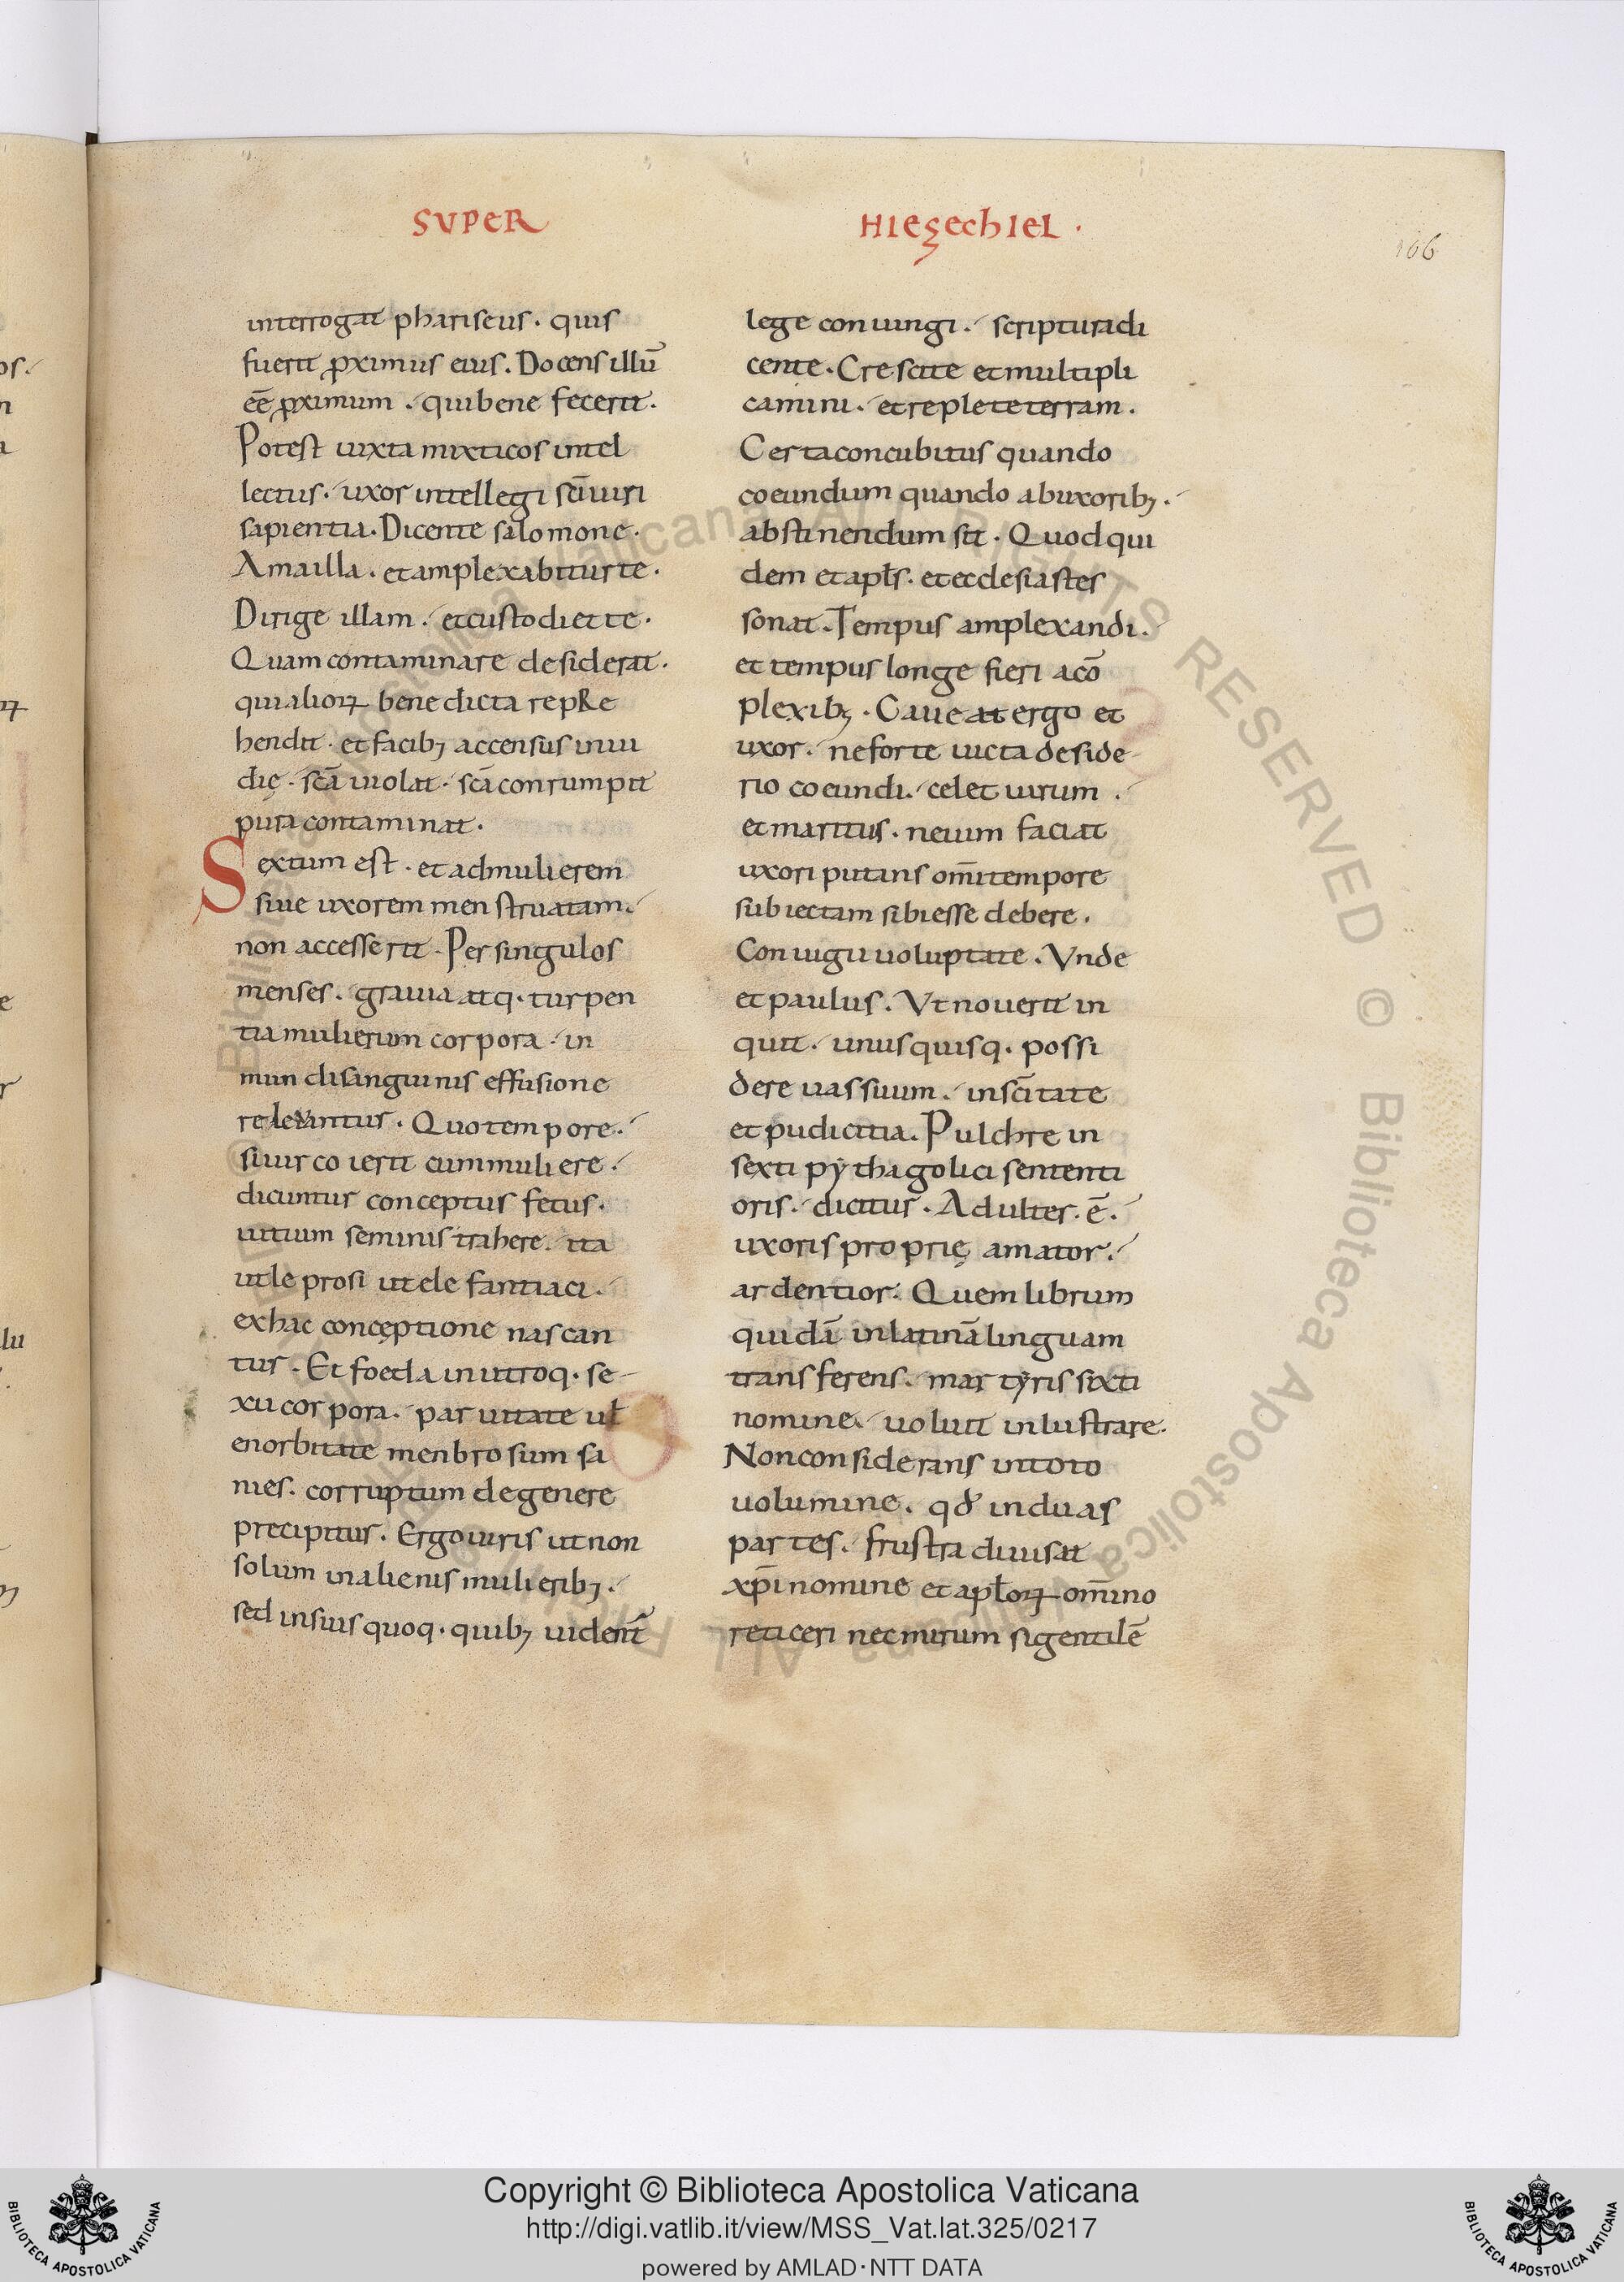 SUPER
HIEZECHIEL ·
166
interrogat phariseus · quis
fuerit ꝓximus eius . Docens illū
eē ꝓximum . qui bene fecerit .
Potest iuxta mixticos intel
lectus . uxor intellegi sc̄i uiri
sapientia . Dicente salomone .
Ama illa . et amplexabitur te .
Dirige illam . et custodiet te .
Quam contaminare desiderat .
qui alioꝝ bene dicta repRe
hendit . et facib; accensus inui
dię . scā uiolat . scā conrumpit
pura contaminat .
Sextum est . et ad mulierem
siue uxorem menstruatam .
non accesserit . Per singulos
menses . grauia atq . turpen
tia mulierum corpora . in
mundi sanguinis effusione
releuantur . Quo tempore .
si uir coierit cum muliere .
dicuntur conceptus fetus .
uitium seminis trahere . ita
ut leprosi ut elefantiaci .
ex hac conceptione nascan
tur . Et foeda in utroq . se
xu corpora . paruitate ul̄
enorbitate menbrosium sa
nies . corruptum degenere
precipitur . Ergo uiris ut non
solum in alienis mulierib; .
sed in suis quoq . quib; uident̄
lege coniungi . scriptura di
cente . Crescite et multipli
camini . et replete terram .
Certa concubitus quando
coeundum quando ab uxorib; .
abstinendum sit . Quod qui
dem et apl̄s . et ecclesiastes
sonat . Tempus amplexandi .
et tempus longe fieri a cō
plexib; . Caueat ergo et
uxor . ne forte uicta deside
rio coeundi . celet uirum .
et maritus . ne uim faciat
uxori putans om̄i tempore
subiectam sibi esse debere .
Coniugii uoluptate . Vnde
et paulus . Vt nouerit in
quit . unusquisq . possi
dere uas suum . in sc̄itate
et pudicitia . Pulchre in
sexti pythagolici sententi
oris . dicitur . Adulter . ē .
uxoris proprię amator .
ardentior . Quem librum
quidā in latinā linguam
transferens . martyris sixti
nomine . uoluit inlustrare .
Non considerans in toto
uolumine . qđ in duas
partes . frustra diuisat
xp̄i nomine et apl̄oꝝ om̄ino
reticeri nec mirum si gentilē
Copyright © Biblioteca Apostolica Vaticana
http://digi.vatlib.it/view/MSS_Vat.lat.325/0217
powered by AMLAD·NTT DATA